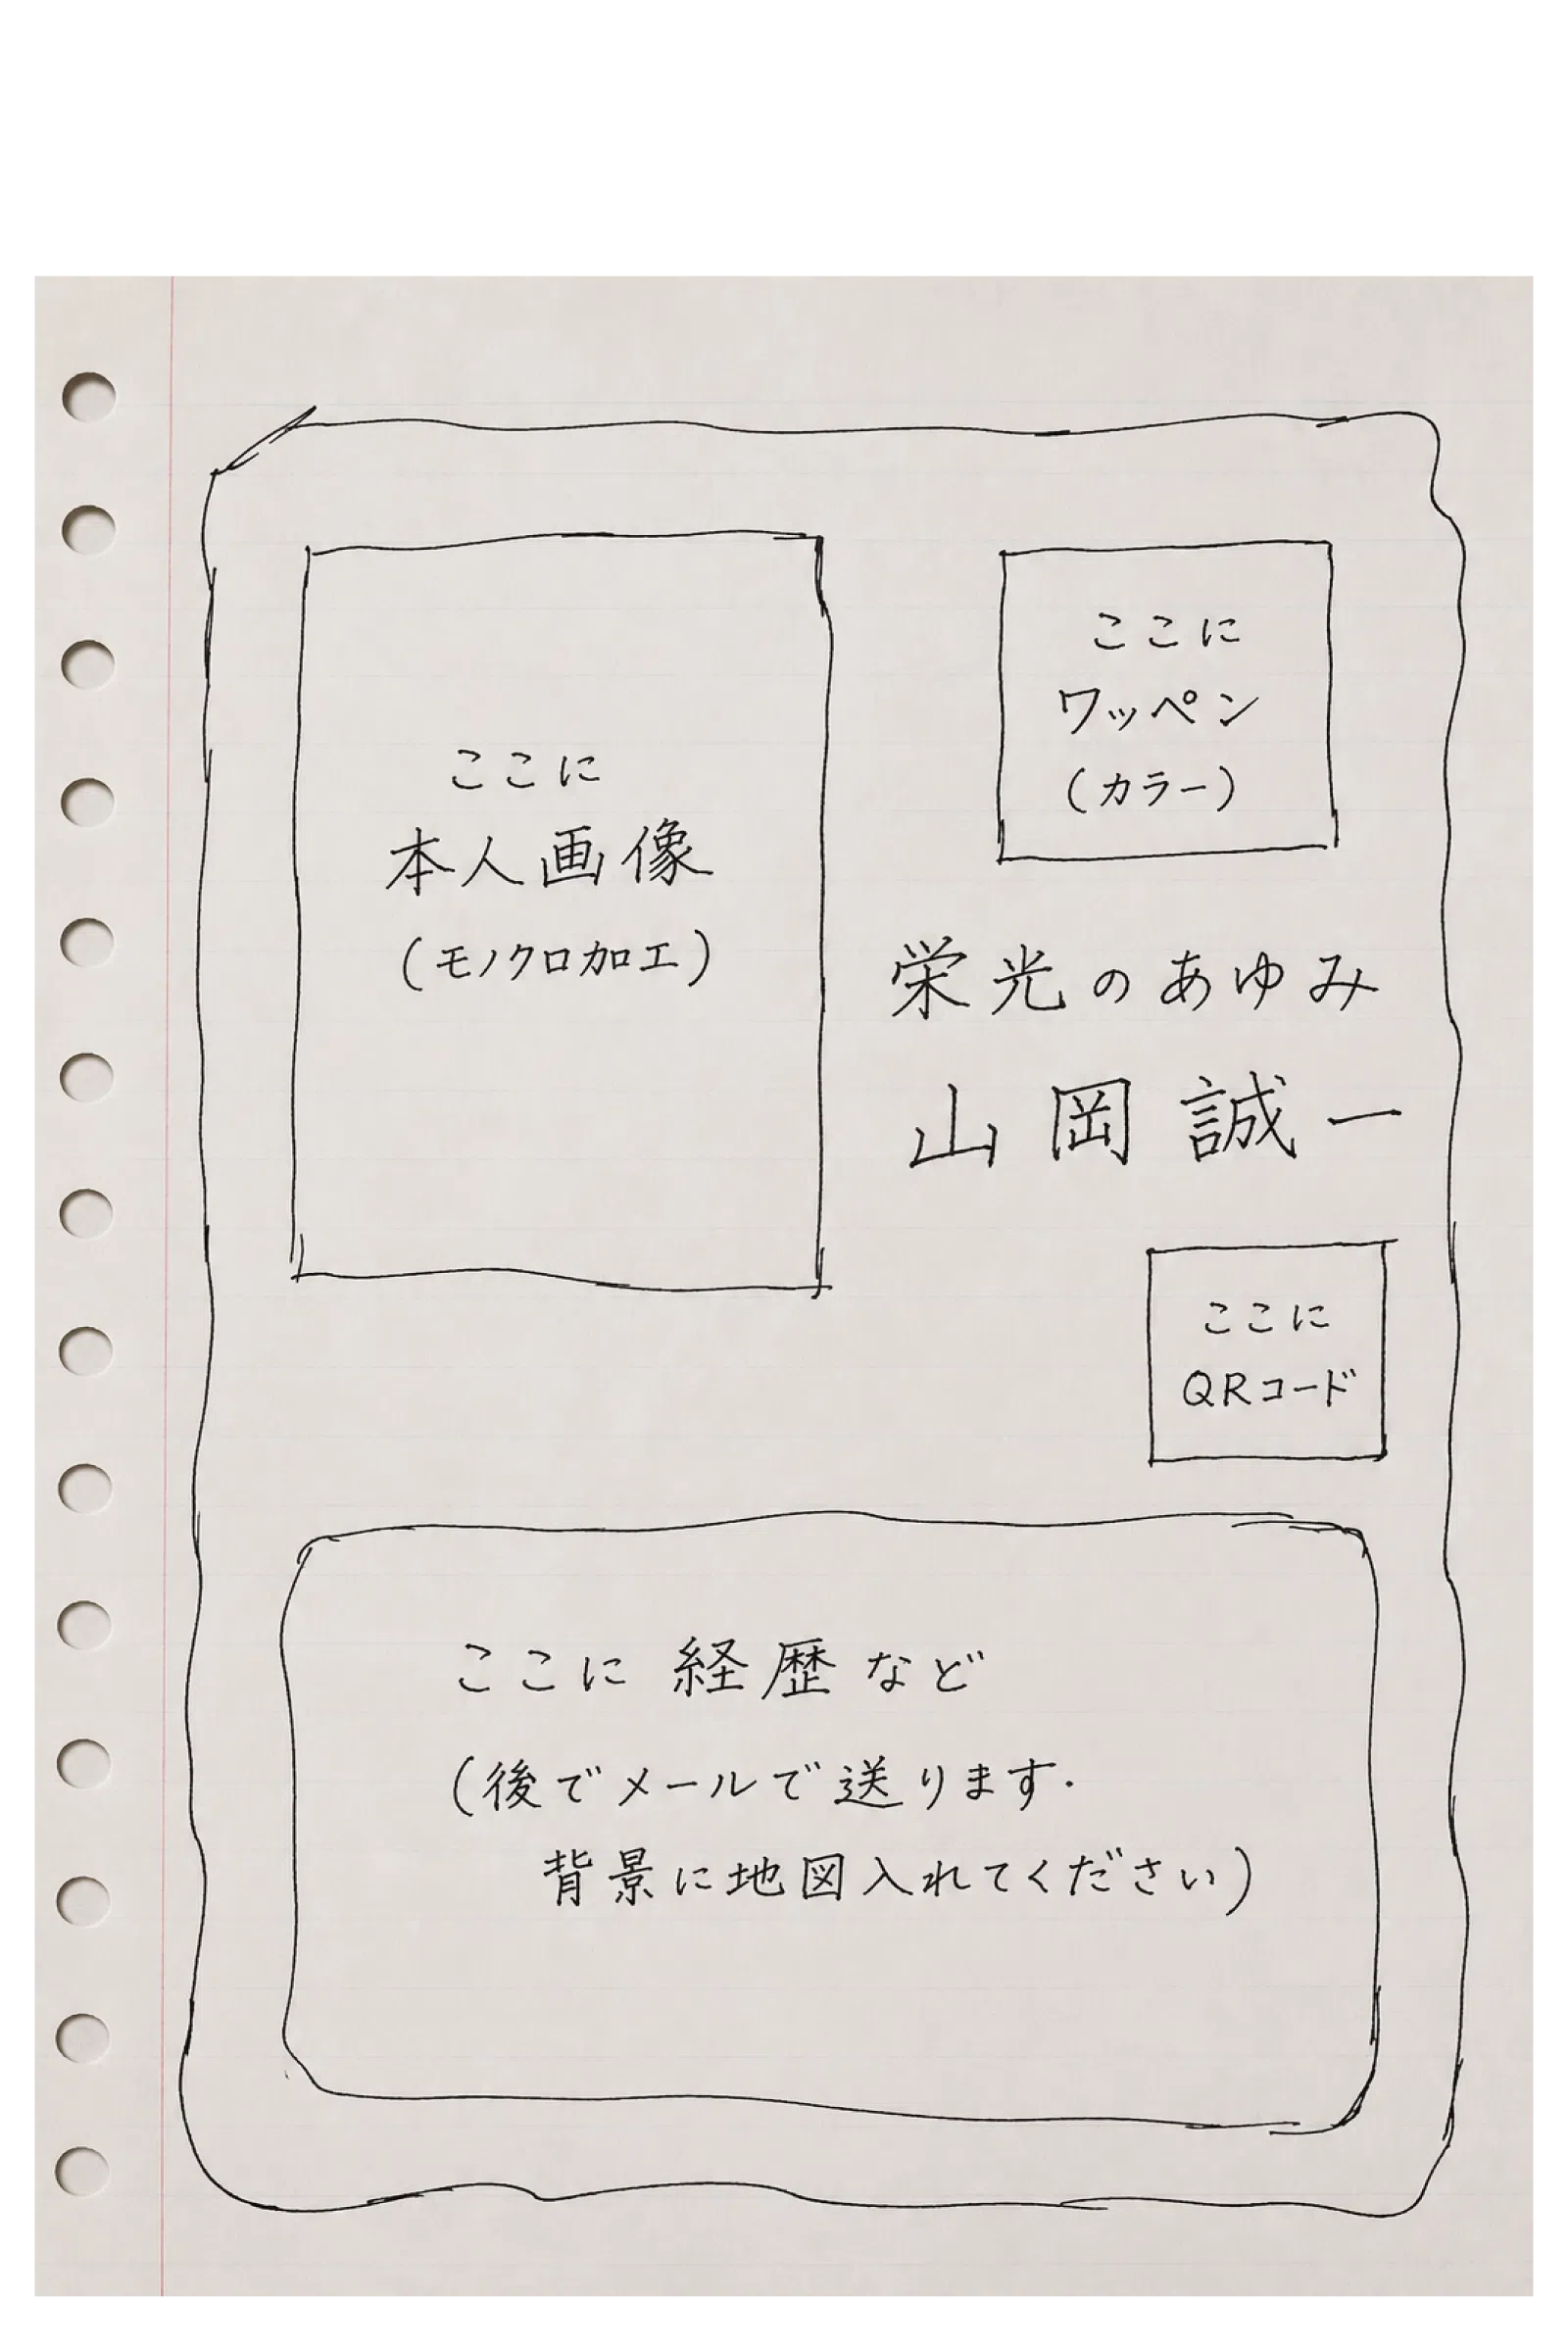 ここに
本人画像
(モノクロ加工)
ここに
ワッペン
(カラー)
栄光のあゆみ
山岡誠一
ここに
QRコード
ここに経歴など
(後でメールで送ります.
背景に地図入れてください)